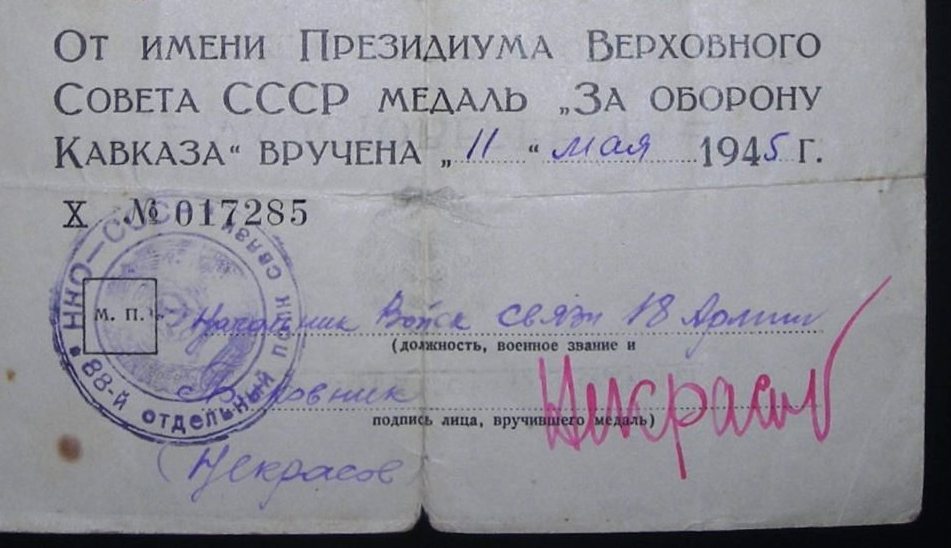 От имени Президиума Верховного
Совета СССР медаль „За оборону
Кавказа“ вручена „11“ мая 1945 г.
Х № 017285
ННО—СССР 88-й отдельный полк связи
м. п.
Начальник Войск связи 18 Армии
(должность, военное звание и
Полковник
подпись лица, вручившего медаль)
Некрасов
(Некрасов